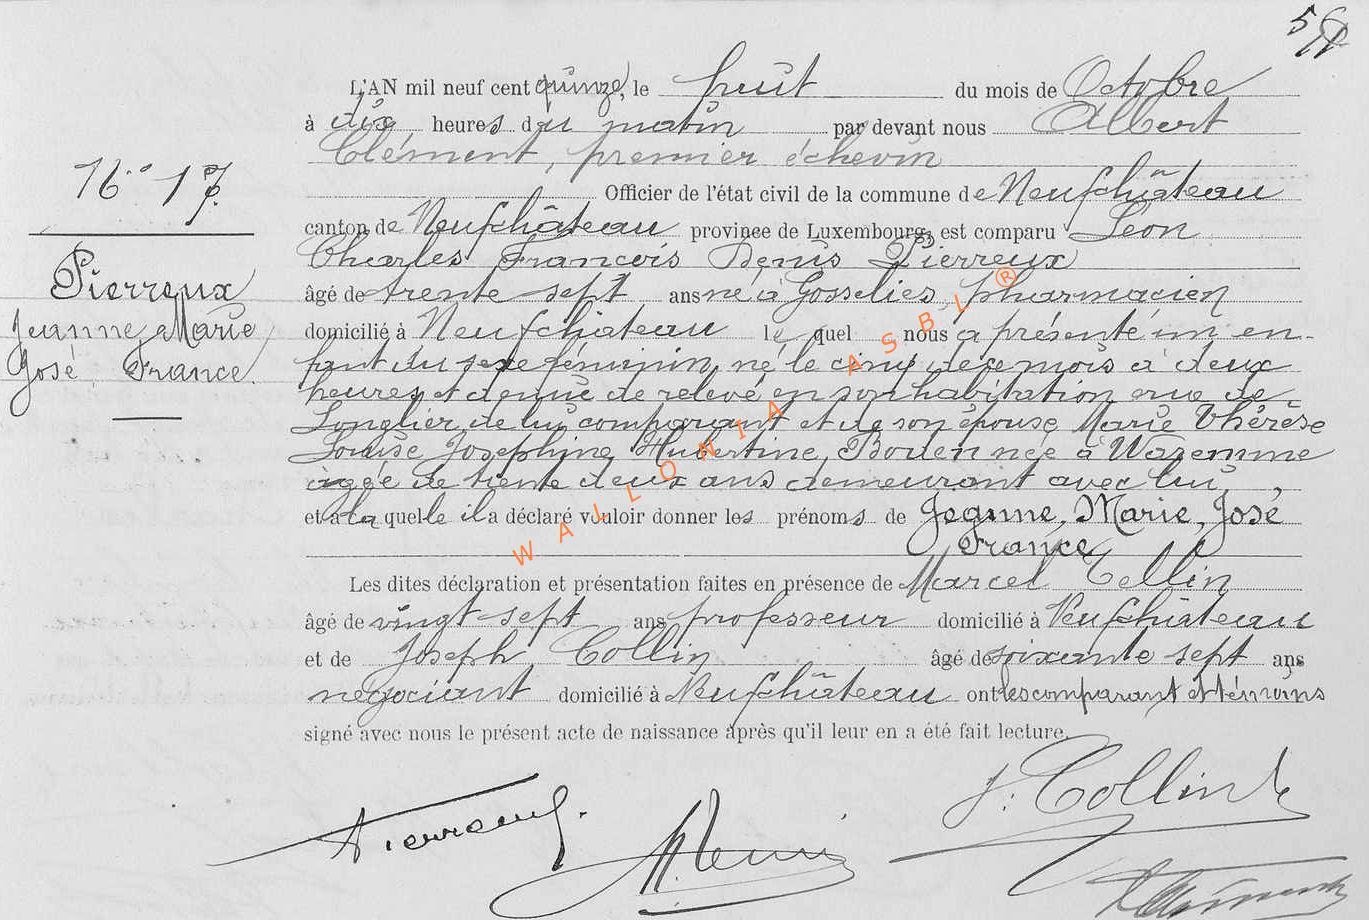 L'AN mil neuf cent quinze, le huit du mois de Octobre
à dix heures du matin par devant nous Albert
Clément, premier échevin
N° 17
Officier de l'état civil de la commune de Neufchâteau
canton de Neufchâteau province de Luxembourg, est comparu Léon
Charles François Denis Pierreux
Pierreux
Jeanne Marie
José France.
âgé de trente sept ans né à Gosselies, pharmacien
domicilié à Neufchateau lequel nous a présenté un en-
fant du sexe féminin, né le cinq de ce mois à deux
heures et demie de relevé en son habitation rue de
Longlier, de lui comparant et de son épouse Marie Thérèse
Louise Josephine Hubertine Boden née à Waremme
âgée de trente deux ans demeurant avec lui,
et à laquelle il a déclaré vouloir donner les prénoms de Jeanne, Marie, José
France
Les dites déclaration et présentation faites en présence de Marcel
âgé de vingt sept ans professeur domicilié à Neufchâteau
et de Joseph Collin âgé de soixante sept ans
négociant domicilié à Neufchâteau ont les comparant et témoins
signé avec nous le présent acte de naissance après qu'il leur en a été fait lecture.
J. Collin
Pierreux
WALLONIA ASBL ®